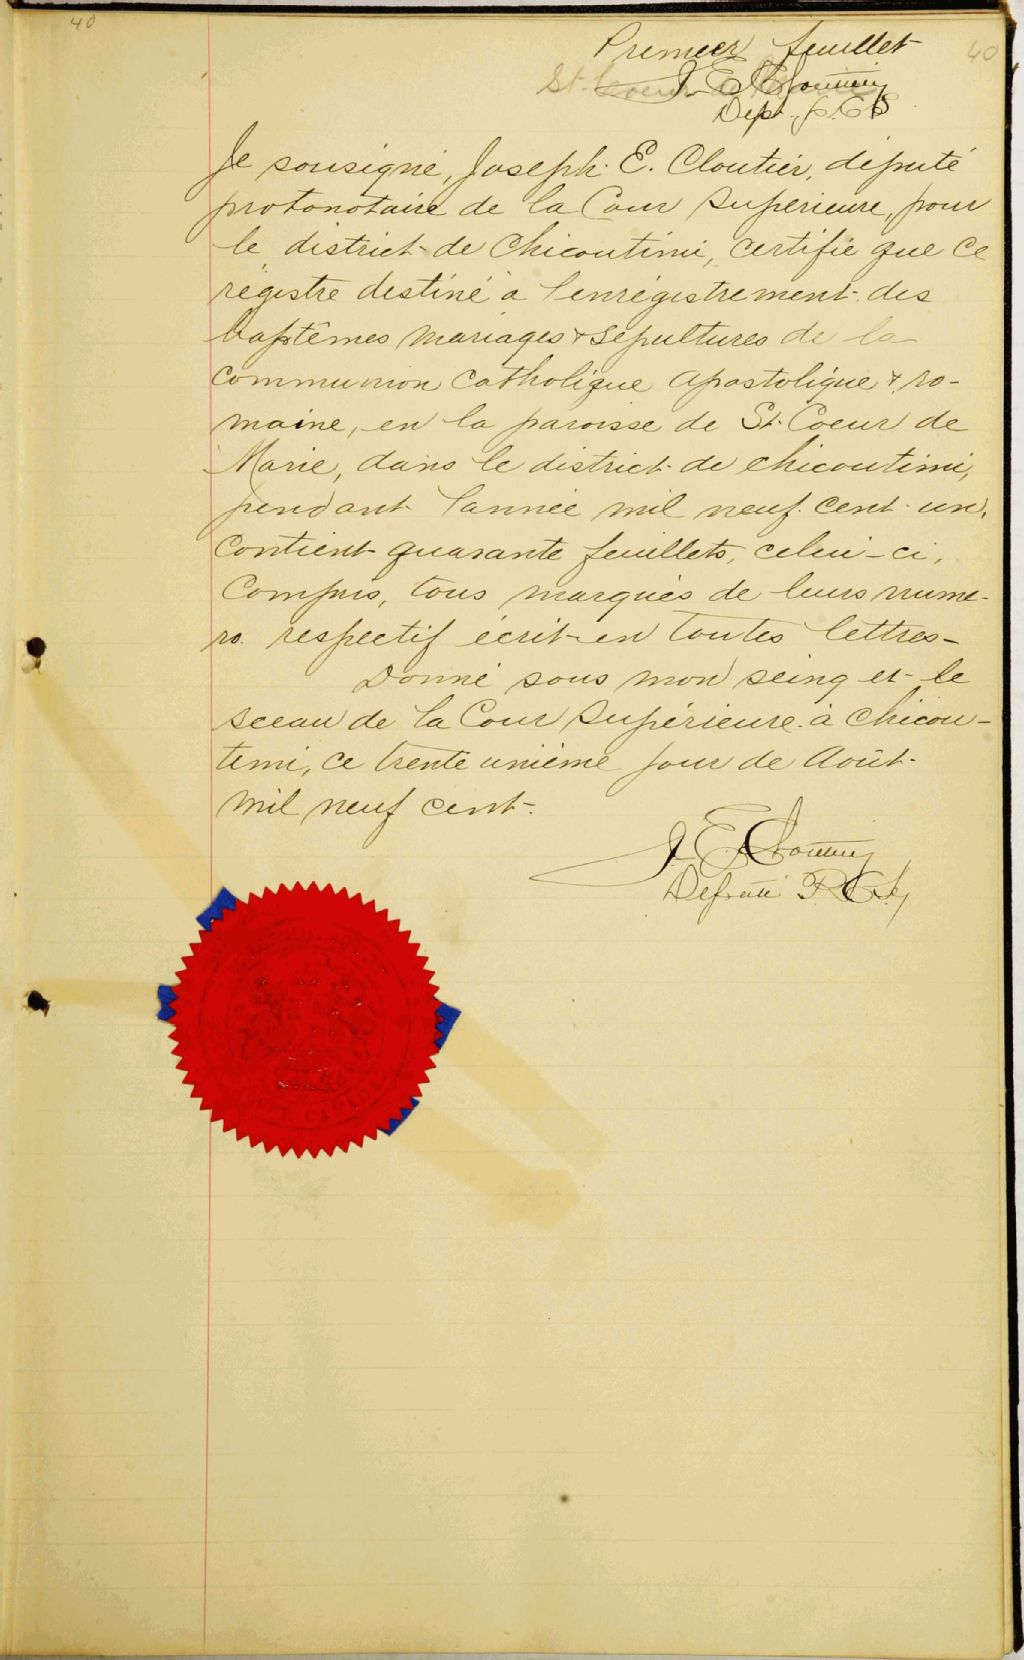 40
Premier feuillet
40
St. Coeur
J. E. Cloutier
Dept. P. C. S
Je sousigné, Joseph. E. Cloutier, député
protonotaire de la Cour Supérieure, pour
le district de Chicoutimi, certifie que ce
régistre destiné à l'enrégistrement des
baptêmes mariages & sépultures de la
communion catholique apostolique & ro-
maine, en la paroisse de St. Coeur de
Marie, dans le district de chicoutimi,
pendant l'année mil neuf cent un,
contient quarante feuillets, celui-ci,
compris, tous marqués de leurs numé-
ro respectif écrit en toutes lettres-
Donné sous mon seing et le
sceau de la Cour Supérieure à chicou-
timi, ce trente unième jour de Août
mil neuf cent.
J. E. Cloutier
Député P. C. S.